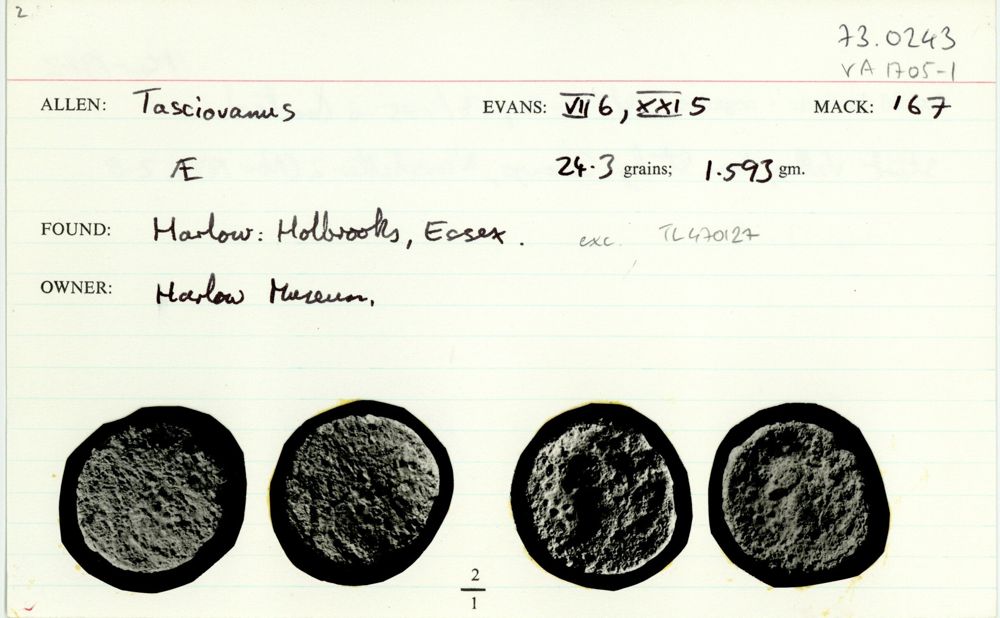 2
73.0243
VA 1705-1
ALLEN: Tasciovanus EVANS: VII 6, XXI 5 MACK: 167
Æ 24.3 grains; 1.593 gm.
FOUND: Harlow: Holbrooks, Essex. exc. TL470127
OWNER: Harlow Museum.
2
1